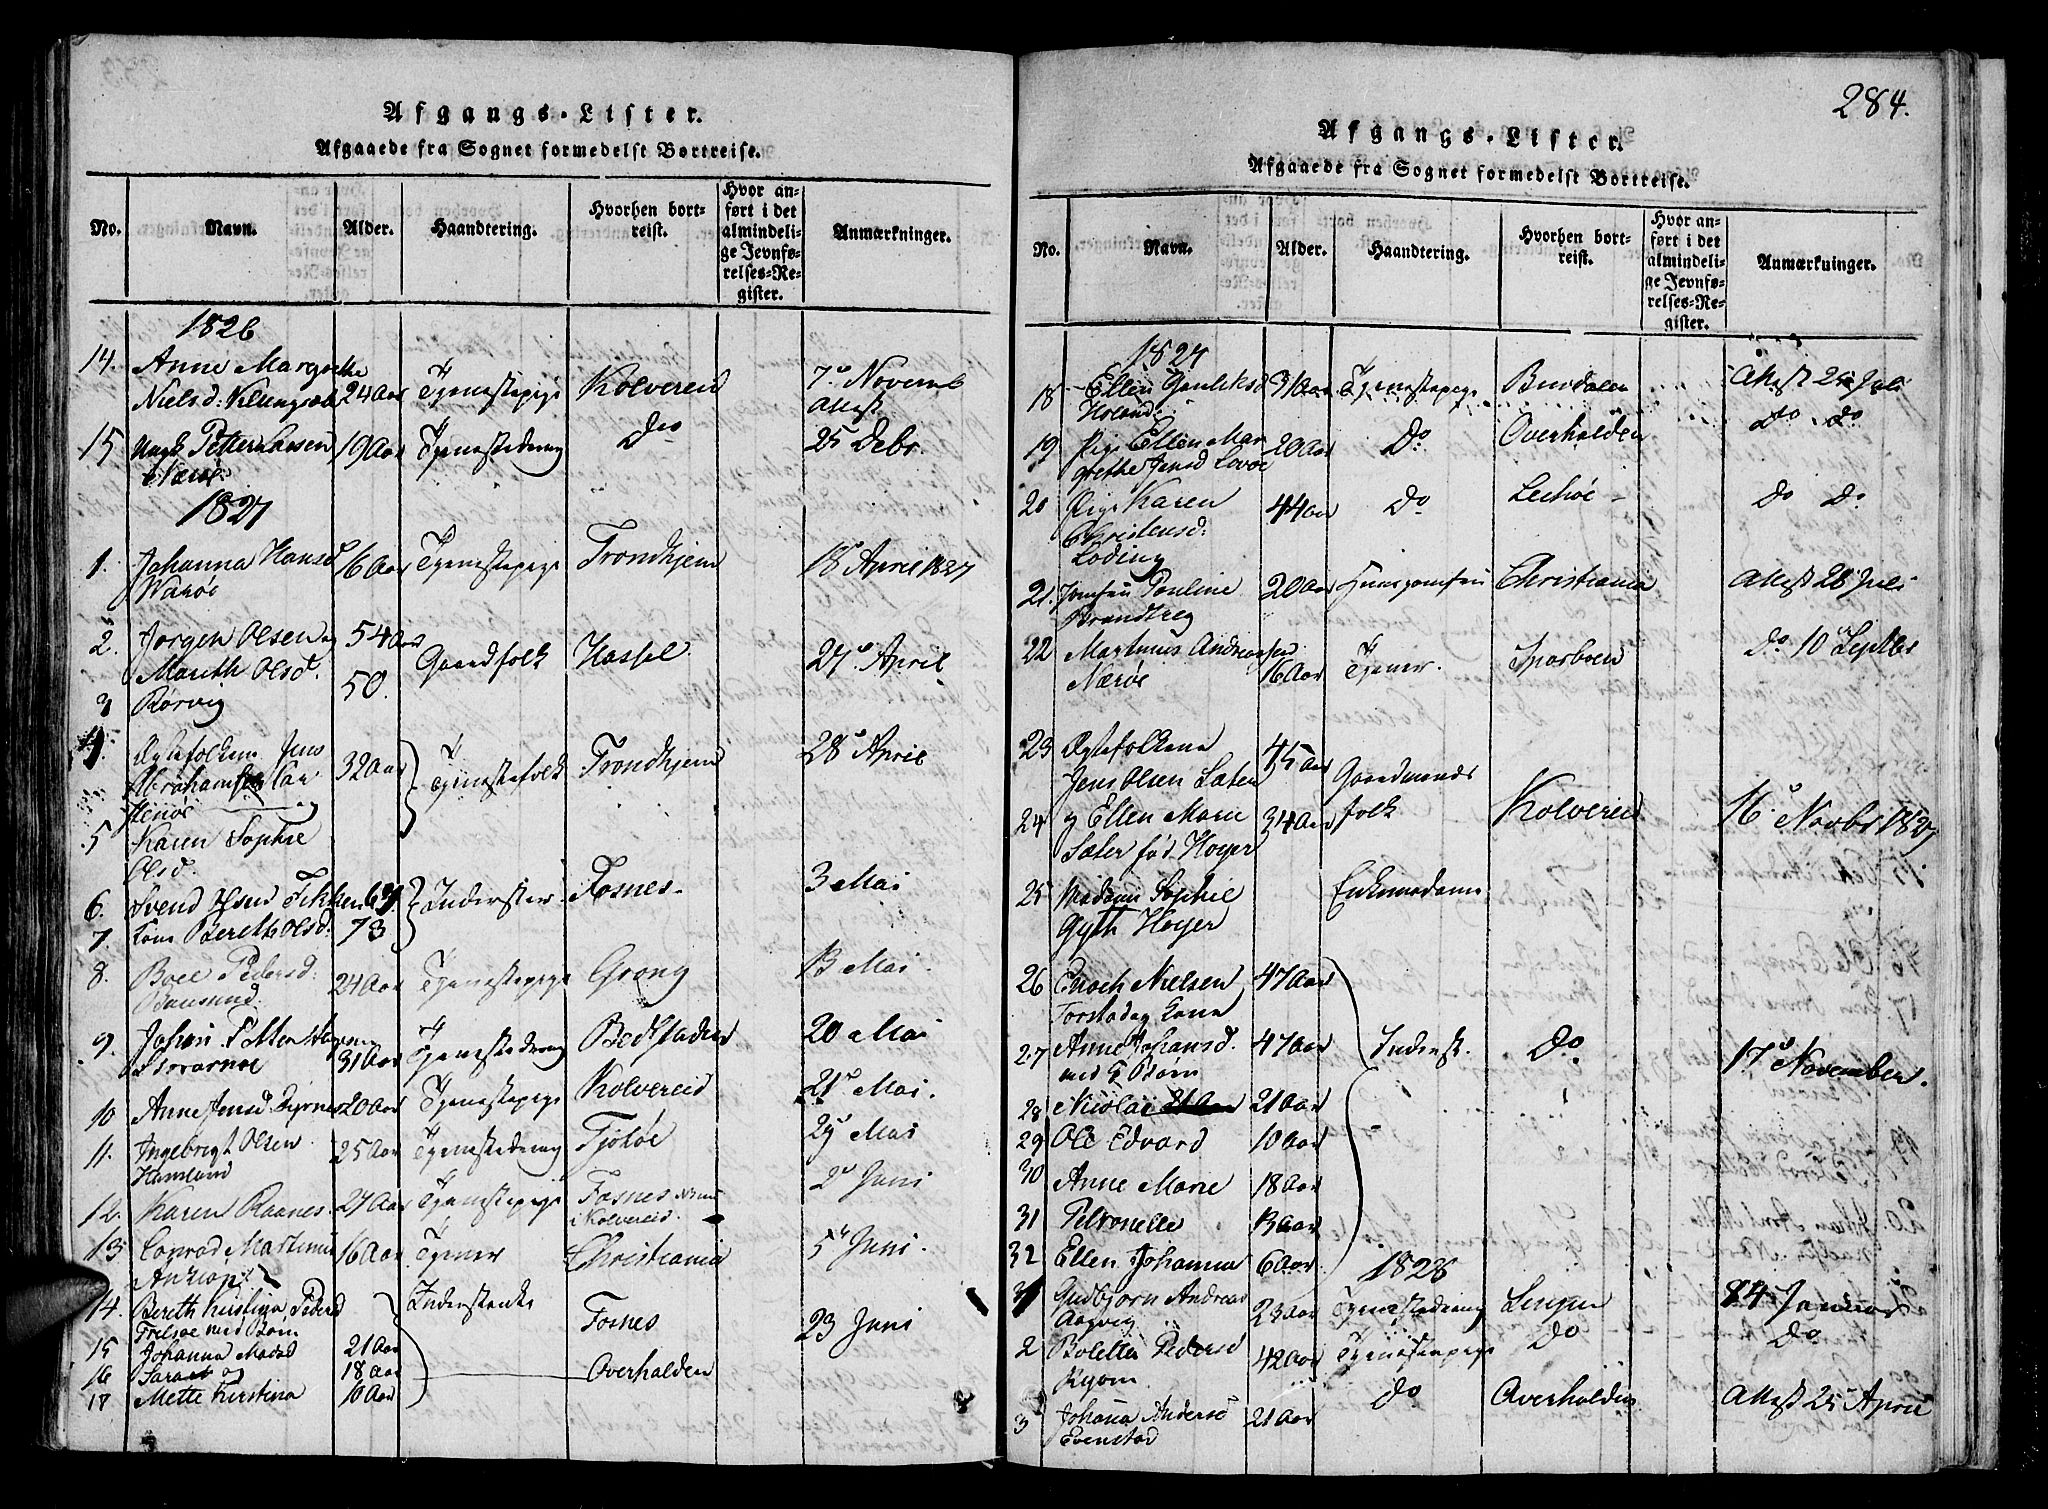 Afgangs-Lister.
Afgaaede fra Sognet formedelst Bortreise.
No. Navn. Alder. Haandtering. Hvorhen bortreist. Hvor anført i det almindelige Jevnførelses-Register. Anmærkninger.
1826
14. Anne Margrethe
Nielsd: Klungsæt 24 Aar Tjenestepige Kolvereid 7de Novemb
Attest
15 Ungk Petter Larsen 19 Aar Tjenestedreng Do 25 Debr.
Nærøe
1827
1. Johanna Hansd 16 Aar Tjenestepige Trondhjem 18 April 1827
Warøe
2. Jørgen Olsen og 54 Aar
Mareth Olsd. 50. Gaardfolk Hassel 27de April
3 Rørvig
4. Ægtefolkene Jens 32 Aar Tjenestefolk Trondhjem 28de April
Abrahamsen
5 Karen Sophie
Olsd.
6. Svend Olsen 69. Inderster Fosnes 3 Mai
7. Kone Bereth Olsd: 73
8. Boel Pedersd: 24 Aar Tjenestepige Grong 13 Mai.
9. Johan Petter 31 Aar Tjenestedreng Bedstaden 20 Mai
10 Anne Jensd 20 Aar Tjenestepige Kolvereid 21de Mai.
11. Ingebrigt Olsen 25 Aar Tjenestedreng Tjøtøe 29 Mai
Hamlund
12. Karen Raanes. 27 Aar Tjenestepige Fosnes 2de Juni
i Kolvereid.
13 Conrad Martinus 16 Aar Tjener Christiania 5te Juni.
14. Bereth Kirstina Peders Inderstenke Fosnes 23 Juni
med Børn
15 Johanna Madsd 21 Aar
16 Sara og 18 Aar Overhalden
17 Mette Kirstina 10 Aar
284.
Afgangs-Lister.
Afgaaede fra Sognet formedelst Bortreise.
No. Navn. Alder. Haandtering. Hvorhen bortreist. Hvor anført i det almindelige Jevnførelses-Register. Anmærkninger.
1827
18 Ellen 31 Aar Tjenestepige Bindalen Attest 25 Juli
19 Pige Ellen Mar 20 Aar Do Overhalden do do
grethe Jensd Lovøe
20 Pige Karen 44 Aar Do Lechøe do do
Christensd:
Løding
21. Jomfru Pauline 20 Aar Huusjomfru Christiania Attest 28 Juli
Brandtzeg
22 Martinus Andreassen 16 Aar Tjener. Sparboen Do 10 Septbr
Nærøe
23 Ægtefolkene 45 Aar
Jens Olsen Sæter Gaardmands
24 og Ellen Marie 34 Aar folk Kolvereid 16de Novbr 1827
Sæter fød Høyer
25 Madam Sophie Enkemadame
Gyth Høyer
26 Enoch Nielsen 47 Aar
Kone
27 Anne Johansd. 47 Aar Inderst. Do 17de November.
med 5 Børn
28 Nicolai 21 Aar 21 Aar
29 Ole Edvard 10 Aar
30 Anne Marie 18 Aar
31 Petronelle 13 Aar
32 Ellen Johanna 6 Aar
1828
1 Gudbjørn Andreas 23 Aar Tjenestedreng 4 Januar
Aagvig
2 Boletta Pedersd 42 Aar Tjenestepige Do Do
Ryom
3 Johanna Andersd 21 Aar do Overhalden Attest 25 April
Evenstad